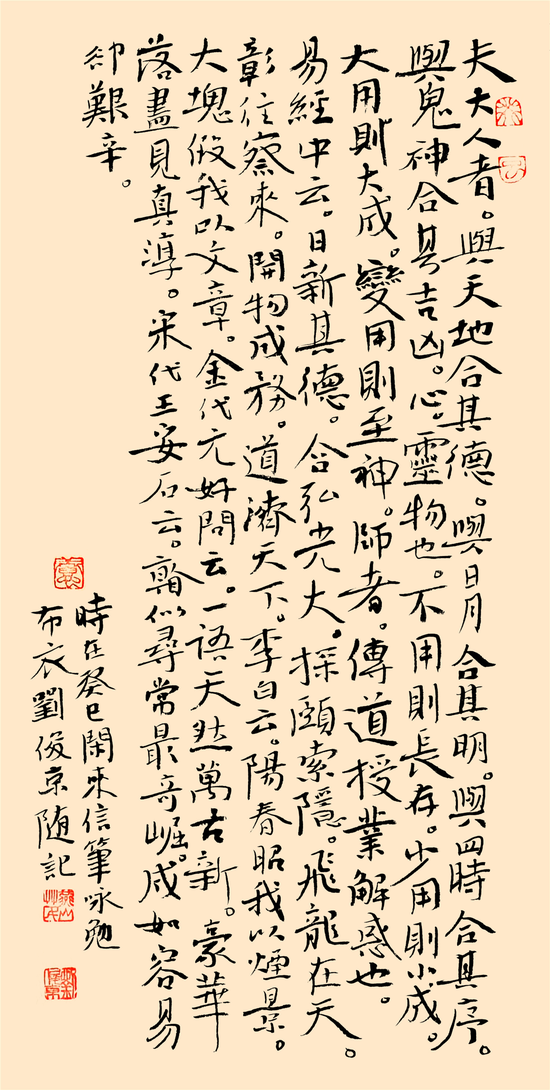 夫大人者。與天地合其德。與日月合其明。與四時合其序。
與鬼神合其吉凶。心。靈物也。不用則長存。少用則小成。
大用則大成。變用則至神。師者。傳道授業解惑也。
易經中云。日新其德。含弘光大。探頤索隱。飛龍在天。
彰往察來。開物成務。道濟天下。李白云。陽春昭我以煙景。
大塊假我以文章。金代元好問云。一語天然萬古新。豪華
落盡見真淳。宋代王安石云。似尋常最奇崛。成如容易
卻艱辛。
時在癸巳閑來信筆咏勉
布衣劉俊京随記